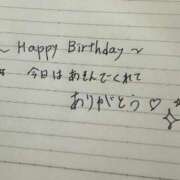 ~ Happy Birthday ~
今日はあそんでくれて
ありがとう♡